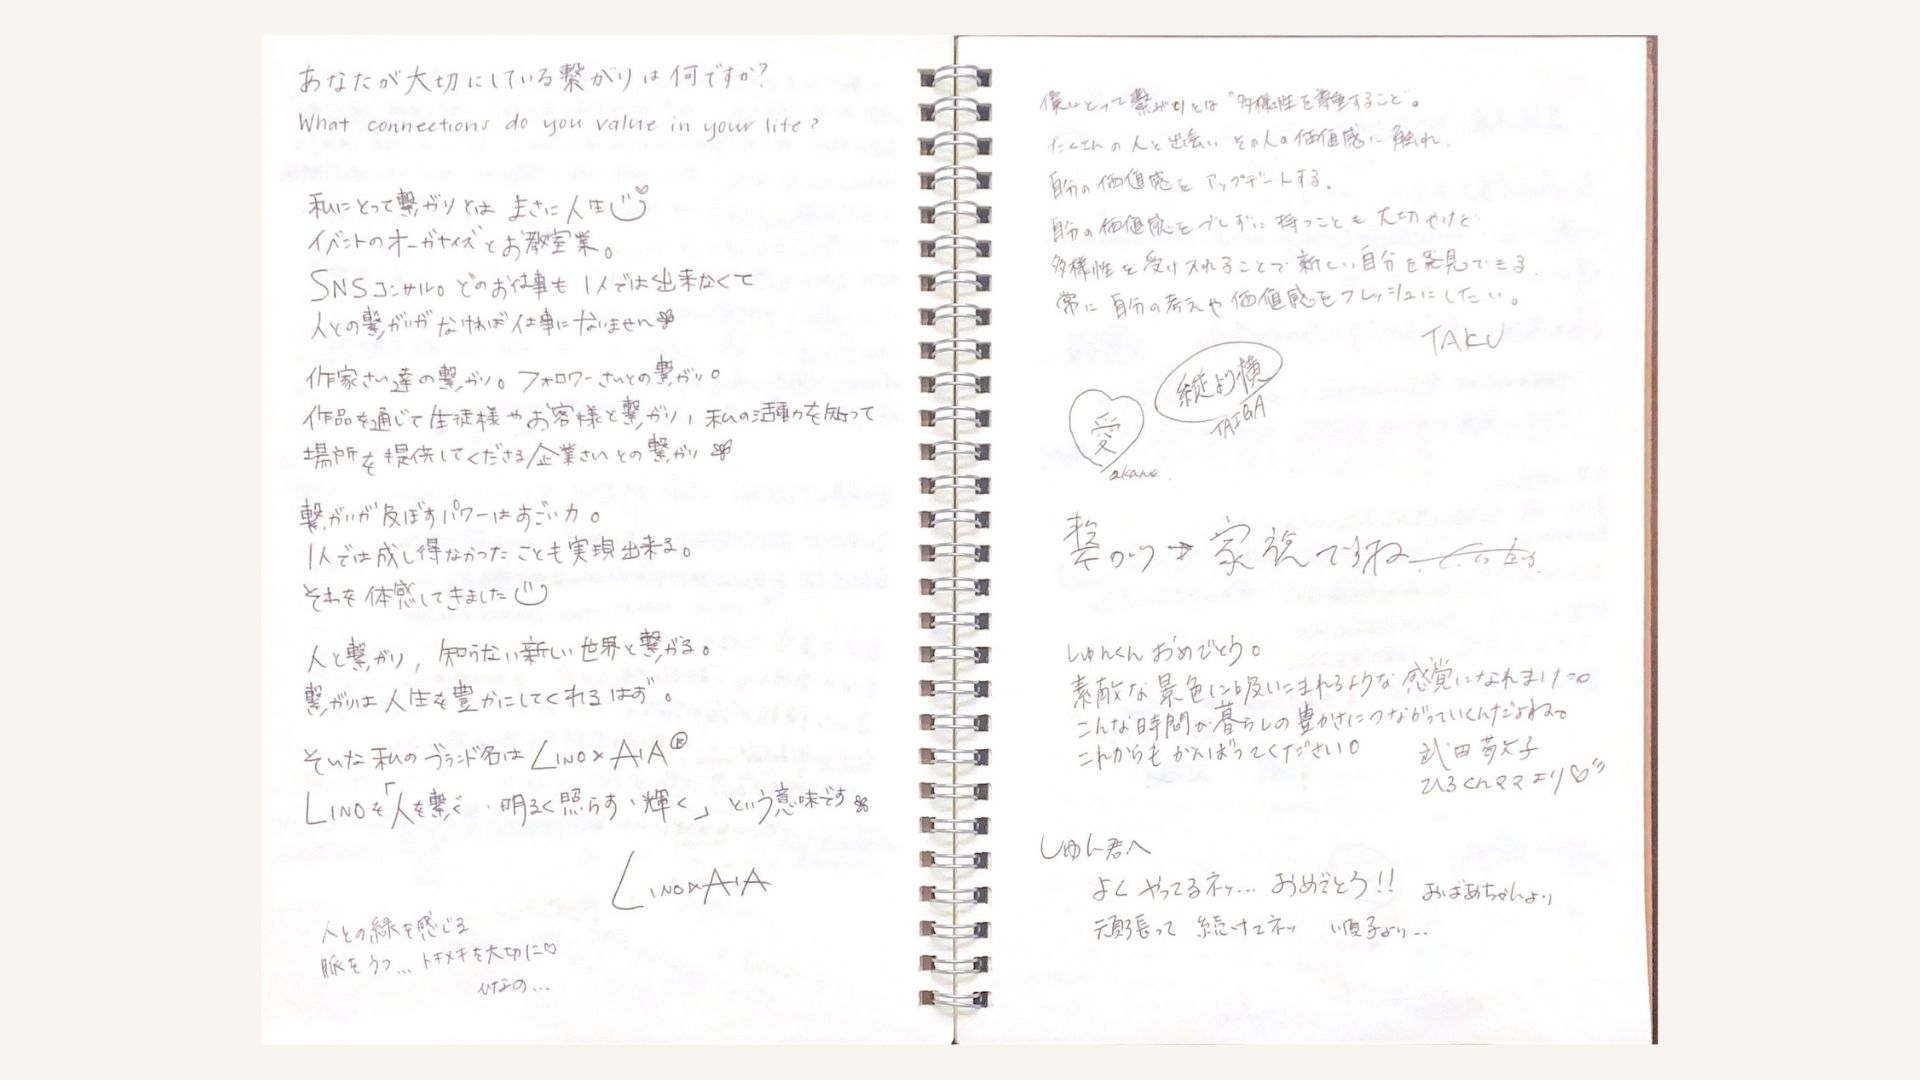 あなたが大切にしている繋がりは何ですか?
What connections do you value in your life?
私にとって繋がりとは まさに人生
イベントのオーガナイズとお教室業。
SNSコンサル。どのお仕事も 1人では出来なくて
人との繋がりがなければ仕事になりません
作家さん達の繋がり。フォロワーさんとの繋がり。
作品を通じて生徒様やお客様と繋がり、私の活動を知って
場所を提供してくださる企業さんとの繋がり
繋がりが及ぼすパワーはすごい力。
1人では成し得なかったことも実現出来る。
それを体感してきました
人と繋がり、知らない新しい世界と繋がる。
繋がりは人生を豊かにしてくれるはず。
そんな私のブランド名は LINO×AIA®
LINOを「人を繋ぐ・明るく照らす・輝く」という意味です
LINO×AIA
人との縁を感じる
脈をうつ… トキメキを大切に♡
ひなの…
僕にとって繋がりとは "多様性を尊重すること"。
たくさんの人と出会い その人の価値感に触れ、
自分の価値感を アップデートする。
自分の価値感をブレずに持つことも大切やけど
多様性を受け入れることで新しい自分を発見できる。
常に自分の考えや価値感をフレッシュにしたい。
TAKU
縦より横
TAIGA
愛
akane.
繋がり → 家族ですね
しゅんくん おめでとう。
素敵な景色に吸いこまれるような感覚になれました。
こんな時間が暮らしの豊かさにつながっていくんだよね。
これからもがんばってください。
武田
ひろくんママより♡
しゅん君へ
よく やってるネッ… おめでとう!! おばあちゃんより
頑張って 続けてネッ 順子より…